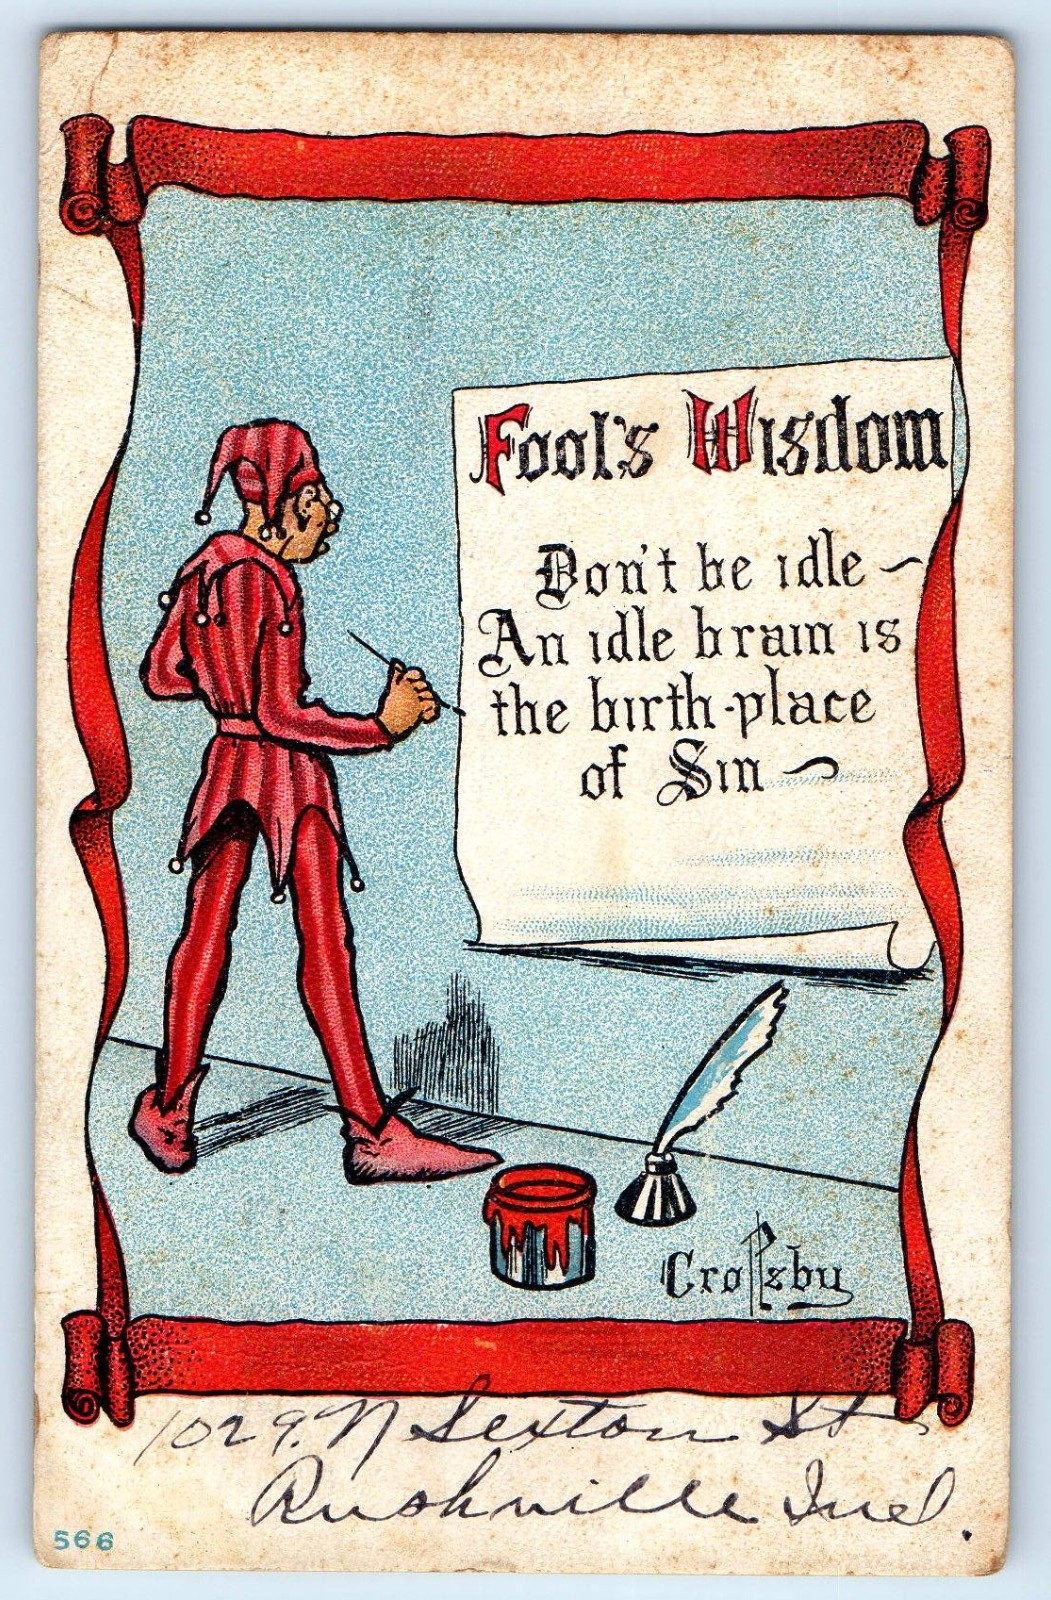 Fool's Wisdom
Don't be idle ~
An idle brain is
the birth-place
of Sin ~
Crosby
1029. N Sexton St
Rushville Ind.
566